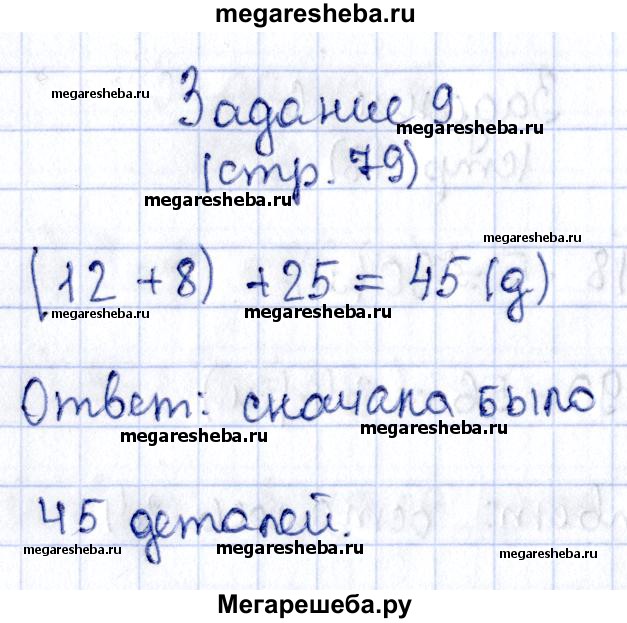 megaresheba.ru
megaresheba.ru
Задание 9
megaresheba.ru
(стр. 79)
megaresheba.ru
megaresheba.ru
(12 + 8) + 25 = 45 (д)
megaresheba.ru megaresheba.ru megaresheba.ru
Ответ: сначала было
megaresheba.ru megaresheba.ru
45 деталей.
megaresheba.ru megaresheba.ru megaresheba.ru
Мегарешеба.ру